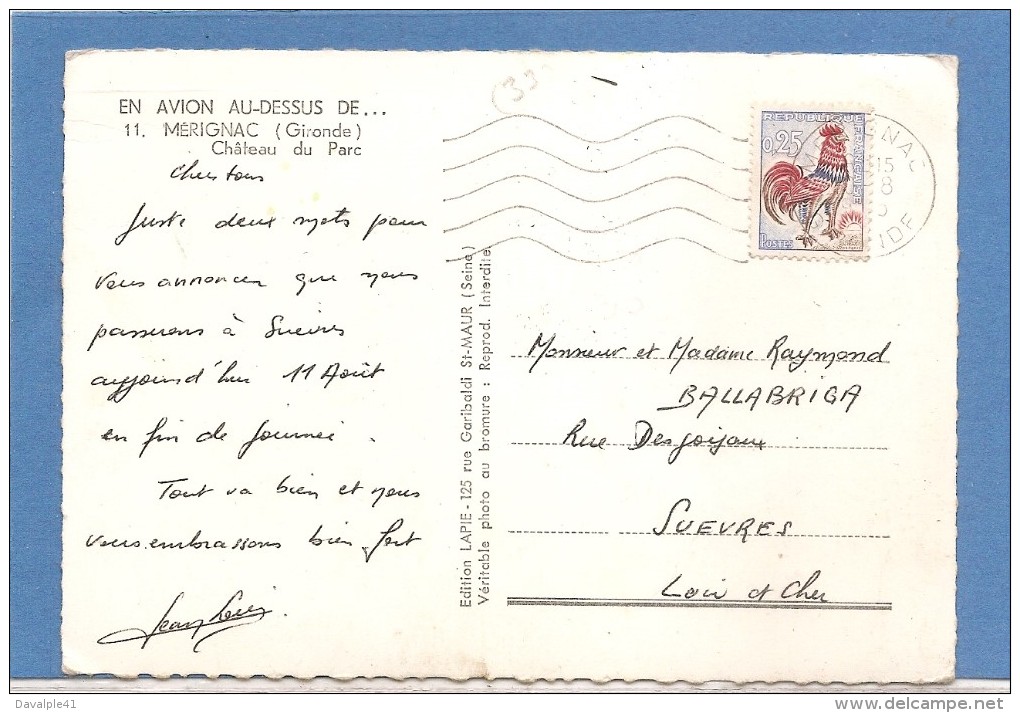 EN AVION AU-DESSUS DE...
11. MÉRIGNAC (Gironde)
Château du Parc
Chers tous
Juste deux mots pour
vous annoncer que nous
passerons à Suèvres
aujourd'hui 11 Août
en fin de journée.
Tout va bien et nous
vous embrassons bien fort
Jean Louis
Edition LAPIE - 125 rue Garibaldi St-MAUR (Seine)
Véritable photo au bromure : Reprod. Interdite
(33
REPUBLIQUE FRANÇAISE
0,25
POSTES
15
8
Monsieur et Madame Raymond
BALLABRIGA
Rue Desjoijaux
SUEVRES
Loir et Cher
Davalple41
www.delcampe.net